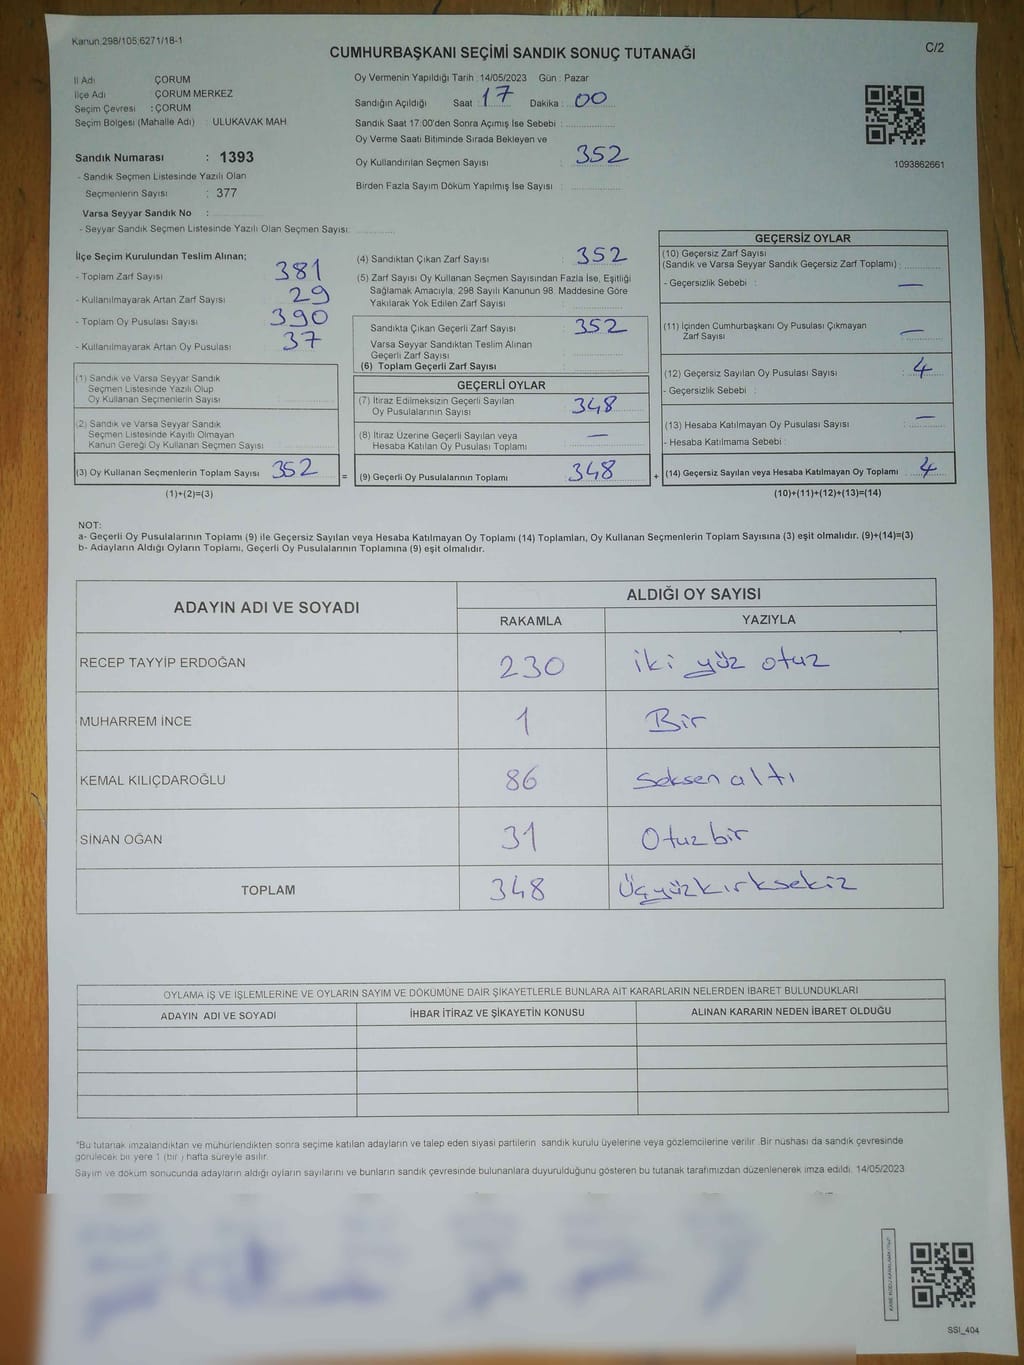 Kanun:298/105;6271/18-1
CUMHURBAŞKANI SEÇİMİ SANDIK SONUÇ TUTANAĞI
C/2
İl Adı ÇORUM
İlçe Adı ÇORUM MERKEZ
Seçim Çevresi : ÇORUM
Seçim Bölgesi (Mahalle Adı) : ULUKAVAK MAH.
Sandık Numarası : 1393
- Sandık Seçmen Listesinde Yazılı Olan
Seçmenlerin Sayısı : 377
Varsa Seyyar Sandık No :
- Seyyar Sandık Seçmen Listesinde Yazılı Olan Seçmen Sayısı:
Oy Vermenin Yapıldığı Tarih : 14/05/2023 Gün : Pazar
Sandığın Açıldığı Saat : 17 Dakika : 00
Sandık Saat 17:00'den Sonra Açımış İse Sebebi :
Oy Verme Saati Bitiminde Sırada Bekleyen ve
Oy Kullandırılan Seçmen Sayısı : 352
Birden Fazla Sayım Döküm Yapılmış İse Sayısı :
1093862661
İlçe Seçim Kurulundan Teslim Alınan;
- Toplam Zarf Sayısı 381
- Kullanılmayarak Artan Zarf Sayısı 29
- Toplam Oy Pusulası Sayısı 390
- Kullanılmayarak Artan Oy Pusulası 37
(1) Sandık ve Varsa Seyyar Sandık
Seçmen Listesinde Yazılı Olup
Oy Kullanan Seçmenlerin Sayısı :
(2) Sandık ve Varsa Seyyar Sandık
Seçmen Listesinde Kayıtlı Olmayan
Kanun Gereği Oy Kullanan Seçmen Sayısı :
(3) Oy Kullanan Seçmenlerin Toplam Sayısı 352 =
(1)+(2)=(3)
(4) Sandıktan Çıkan Zarf Sayısı : 352
(5) Zarf Sayısı Oy Kullanan Seçmen Sayısından Fazla İse, Eşitliği
Sağlamak Amacıyla, 298 Sayılı Kanunun 98. Maddesine Göre
Yakılarak Yok Edilen Zarf Sayısı :
Sandıkta Çıkan Geçerli Zarf Sayısı : 352
Varsa Seyyar Sandıktan Teslim Alınan
Geçerli Zarf Sayısı :
(6) Toplam Geçerli Zarf Sayısı :
GEÇERLİ OYLAR
(7) İtiraz Edilmeksizin Geçerli Sayılan
Oy Pusulalarının Sayısı : 348
(8) İtiraz Üzerine Geçerli Sayılan veya
Hesaba Katılan Oy Pusulası Toplamı : —
(9) Geçerli Oy Pusulalarının Toplamı : 348 +
GEÇERSİZ OYLAR
(10) Geçersiz Zarf Sayısı
(Sandık ve Varsa Seyyar Sandık Geçersiz Zarf Toplamı) :
- Geçersizlik Sebebi : —
(11) İçinden Cumhurbaşkanı Oy Pusulası Çıkmayan
Zarf Sayısı : —
(12) Geçersiz Sayılan Oy Pusulası Sayısı : 4
- Geçersizlik Sebebi :
(13) Hesaba Katılmayan Oy Pusulası Sayısı : —
- Hesaba Katılmama Sebebi :
(14) Geçersiz Sayılan veya Hesaba Katılmayan Oy Toplamı : 4
(10)+(11)+(12)+(13)=(14)
NOT:
a- Geçerli Oy Pusulalarının Toplamı (9) ile Geçersiz Sayılan veya Hesaba Katılmayan Oy Toplamı (14) Toplamları, Oy Kullanan Seçmenlerin Toplam Sayısına (3) eşit olmalıdır. (9)+(14)=(3)
b- Adayların Aldığı Oyların Toplamı, Geçerli Oy Pusulalarının Toplamına (9) eşit olmalıdır.
ADAYIN ADI VE SOYADI ALDIĞI OY SAYISI
RAKAMLA YAZIYLA
RECEP TAYYİP ERDOĞAN 230 iki yüz otuz
MUHARREM İNCE 1 Bir
KEMAL KILIÇDAROĞLU 86 Seksen altı
SİNAN OĞAN 31 Otuzbir
TOPLAM 348 Üçyüzkırksekiz
OYLAMA İŞ VE İŞLEMLERİNE VE OYLARIN SAYIM VE DÖKÜMÜNE DAİR ŞİKAYETLERLE BUNLARA AİT KARARLARIN NELERDEN İBARET BULUNDUKLARI
ADAYIN ADI VE SOYADI İHBAR İTİRAZ VE ŞİKAYETİN KONUSU ALINAN KARARIN NEDEN İBARET OLDUĞU
*Bu tutanak imzalandıktan ve mühürlendikten sonra seçime katılan adayların ve talep eden siyasi partilerin sandık kurulu üyelerine veya gözlemcilerine verilir. Bir nüshası da sandık çevresinde
görülecek bir yere 1 (bir ) hafta süreyle asılır.
Sayım ve döküm sonucunda adayların aldığı oyların sayılarını ve bunların sandık çevresinde bulunanlara duyurulduğunu gösteren bu tutanak tarafımızdan düzenlenerek imza edildi. 14/05/2023
SSI_404